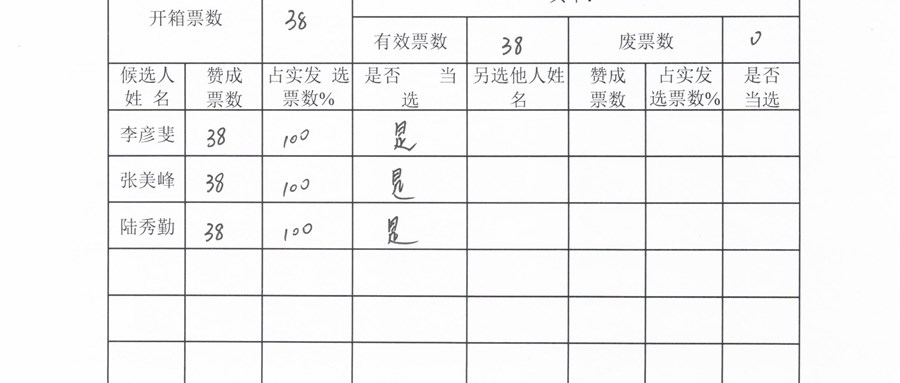 开箱票数 38
有效票数 38 废票数 0
候选人姓名 赞成票数 占实发选票数% 是否当选 另选他人姓名 赞成票数 占实发选票数% 是否当选
李彦斐 38 100 是
张美峰 38 100 是
陆秀勤 38 100 是